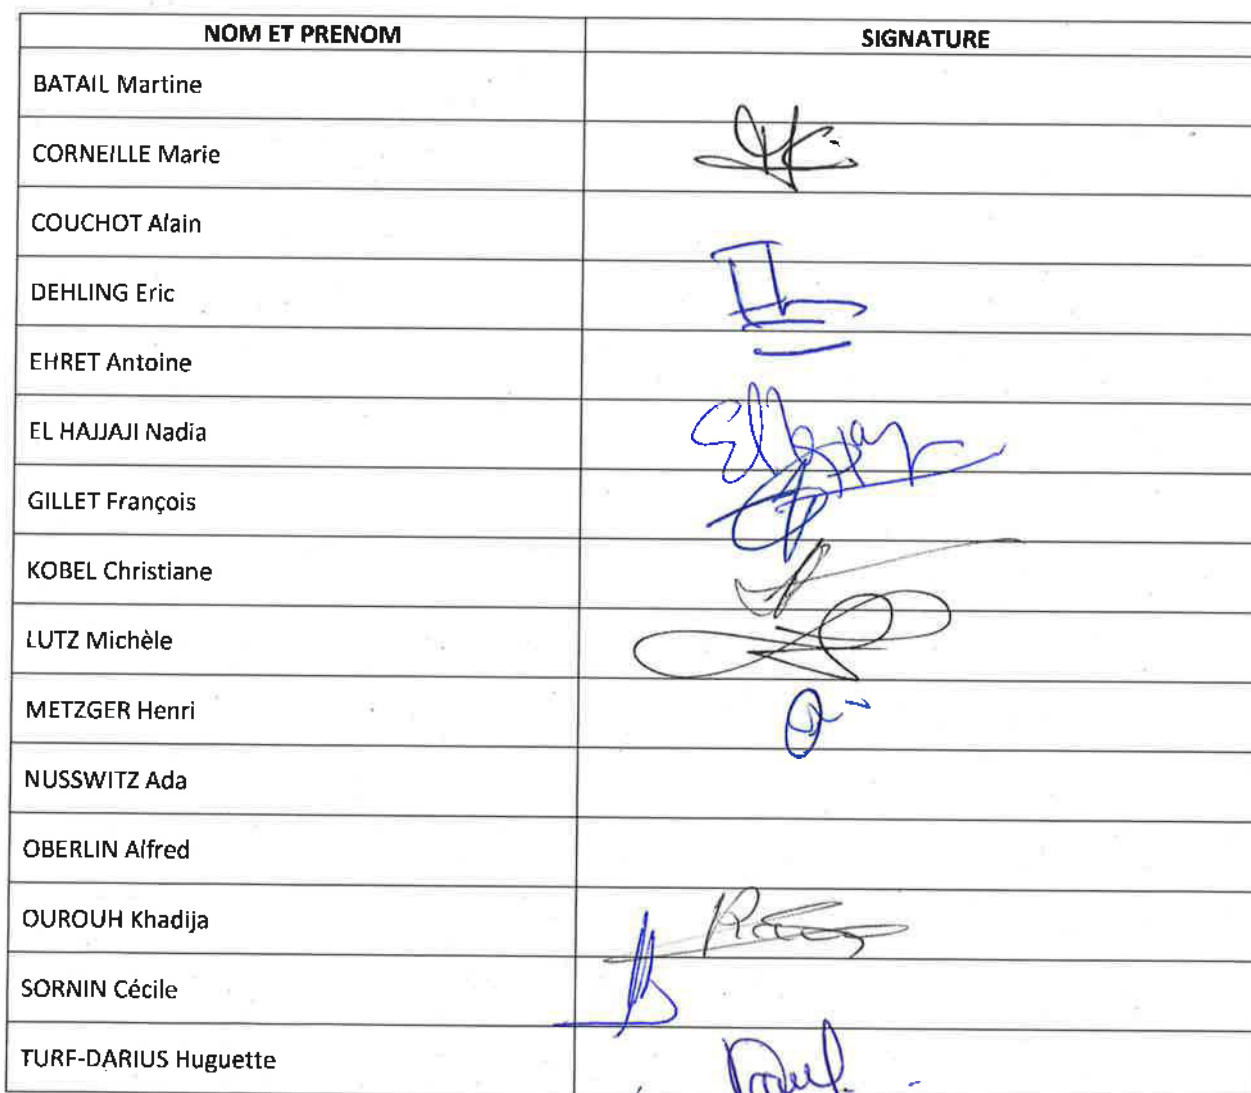 NOM ET PRENOM SIGNATURE
BATAIL Martine
CORNEILLE Marie
COUCHOT Alain
DEHLING Eric
EHRET Antoine
EL HAJJAJI Nadia
GILLET François
KOBEL Christiane
LUTZ Michèle
METZGER Henri
NUSSWITZ Ada
OBERLIN Alfred
OUROUH Khadija
SORNIN Cécile
TURF-DARIUS Huguette